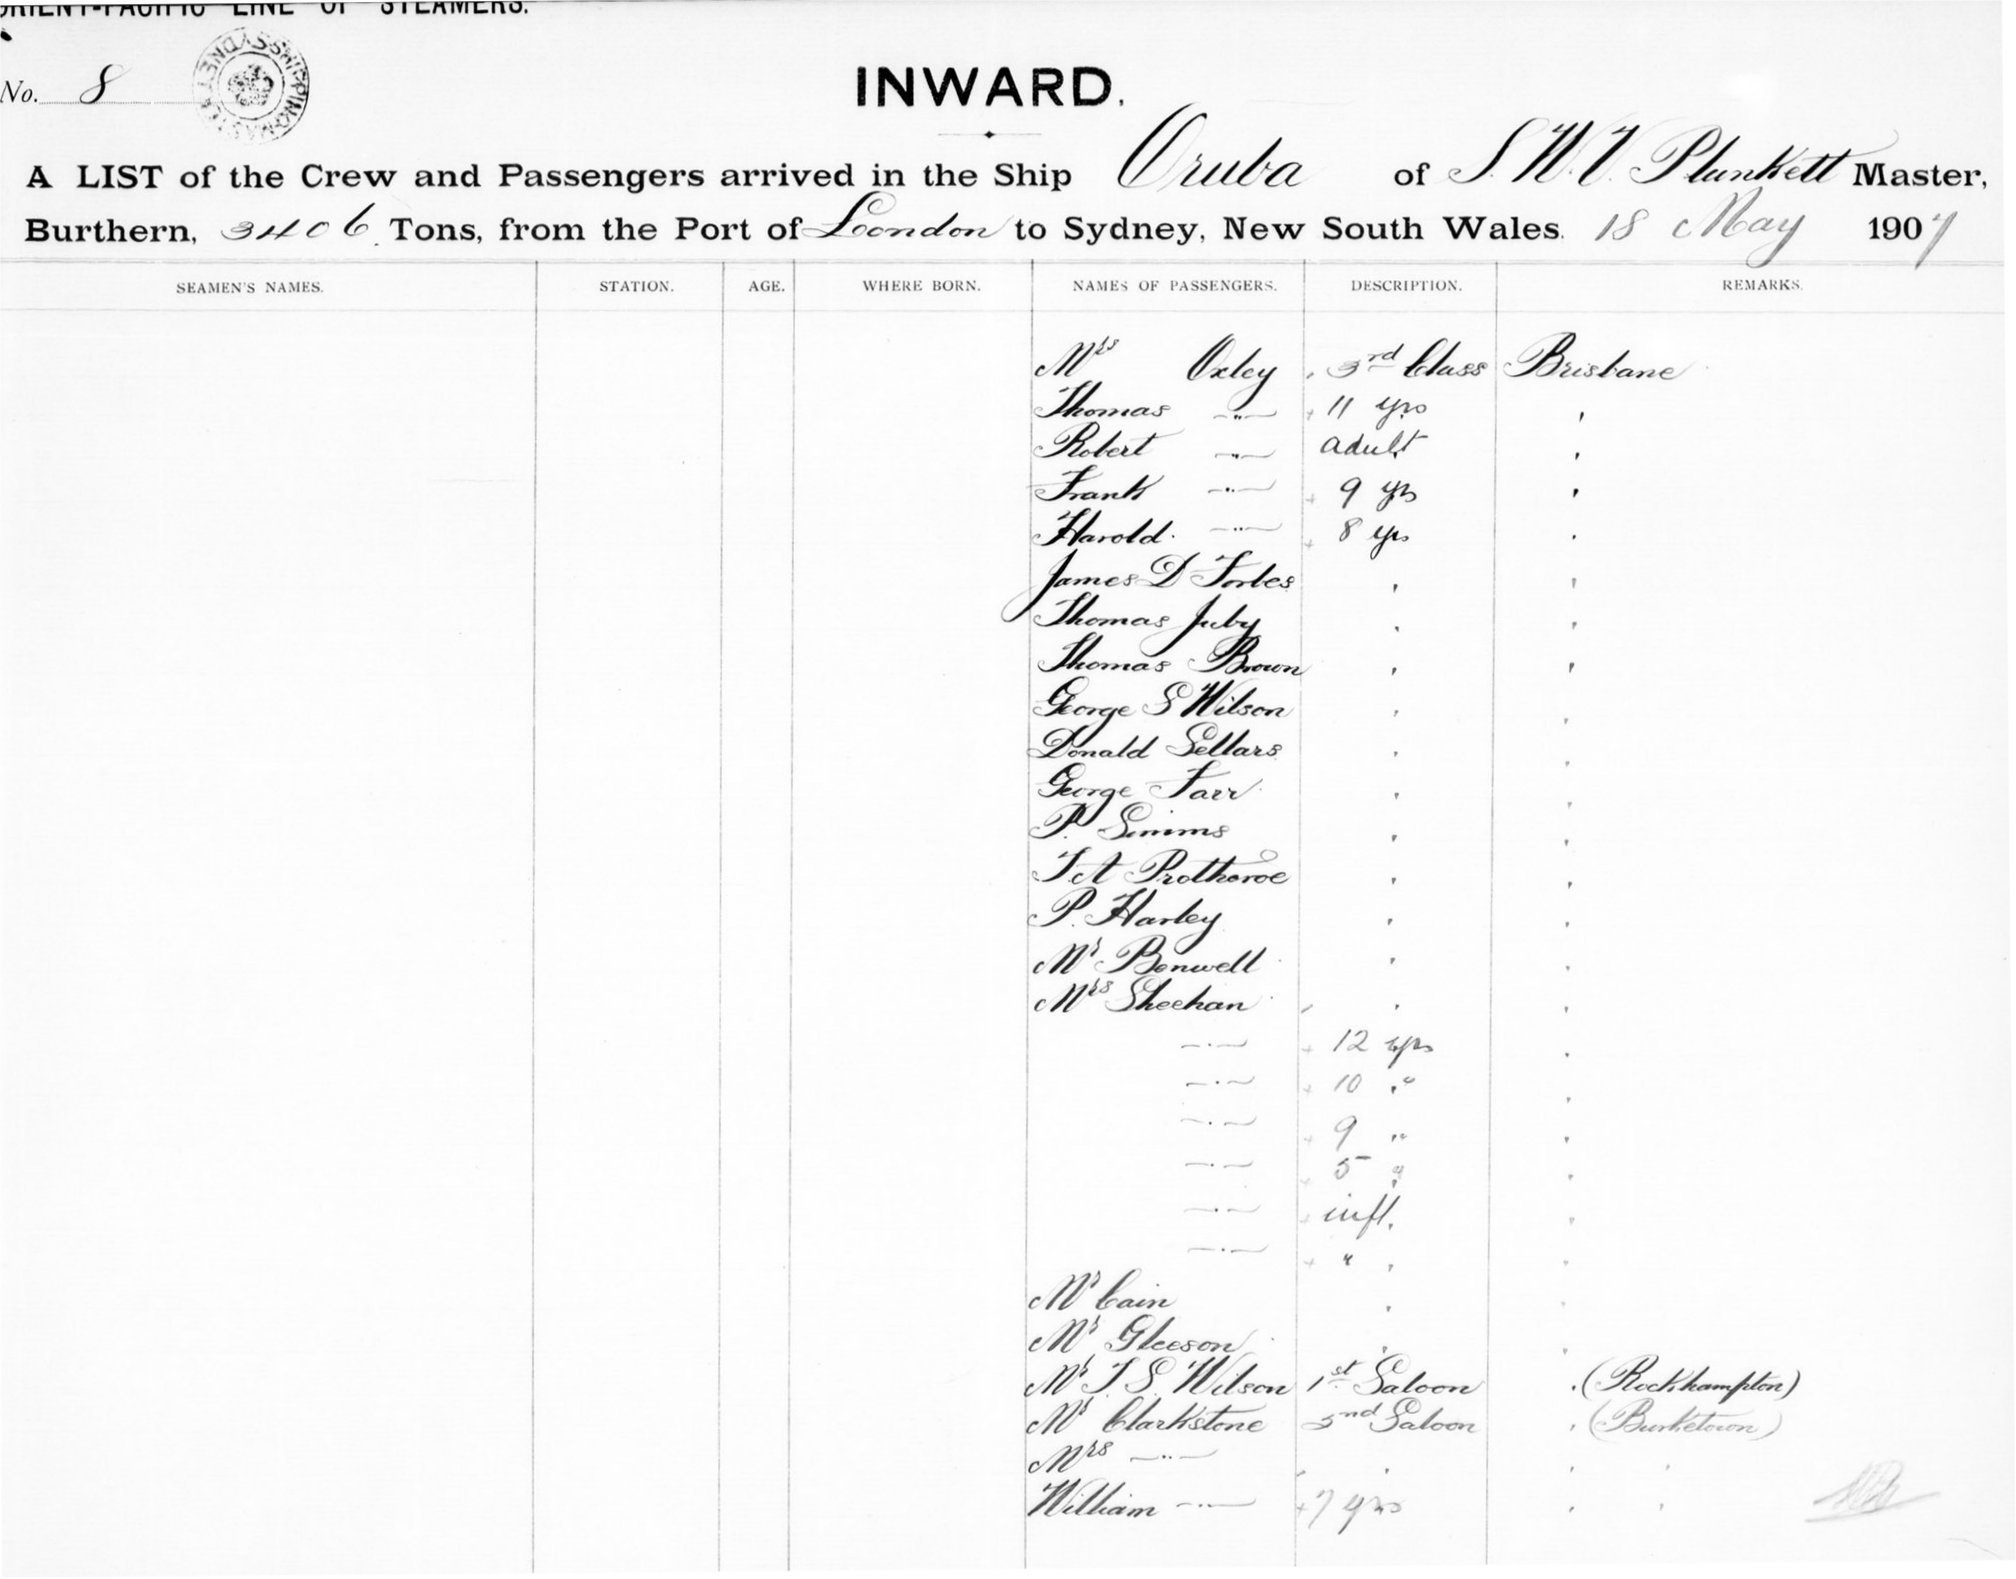 ORIENT-PACIFIC LINE OF STEAMERS.
No. 8
SHIPPING MASTER SYDNEY
INWARD.
A LIST of the Crew and Passengers arrived in the Ship Oruba of S. W. V. Plunkett Master,
Burthern, 3406 Tons, from the Port of London to Sydney, New South Wales. 18 May 1907
SEAMEN'S NAMES. STATION. AGE. WHERE BORN. NAMES OF PASSENGERS. DESCRIPTION. REMARKS.
Mrs Oxley 3rd Class Brisbane
Thomas —"— 11 yrs "
Robert —"— adult "
Frank —"— 9 yrs "
Harold —"— 8 yrs "
James D Forbes " "
Thomas Juby " "
Thomas Brown " "
George S Wilson " "
Donald Sellars " "
George Farr " "
P. Simms " "
T. A Protheroe " "
P. Harley " "
Mr Benwell " "
Mrs Sheehan " "
—"— 12 yrs "
—"— 10 " "
—"— 9 " "
—"— 5 " "
—"— inft. "
—"— " "
Mr Cain " "
Mr Gleeson " "
Mr T. S. Wilson 1st Saloon " (Rockhampton)
Mr Clarkstone 2nd Saloon " (Burketown)
Mrs —"— " " "
William —"— 7 yrs " "